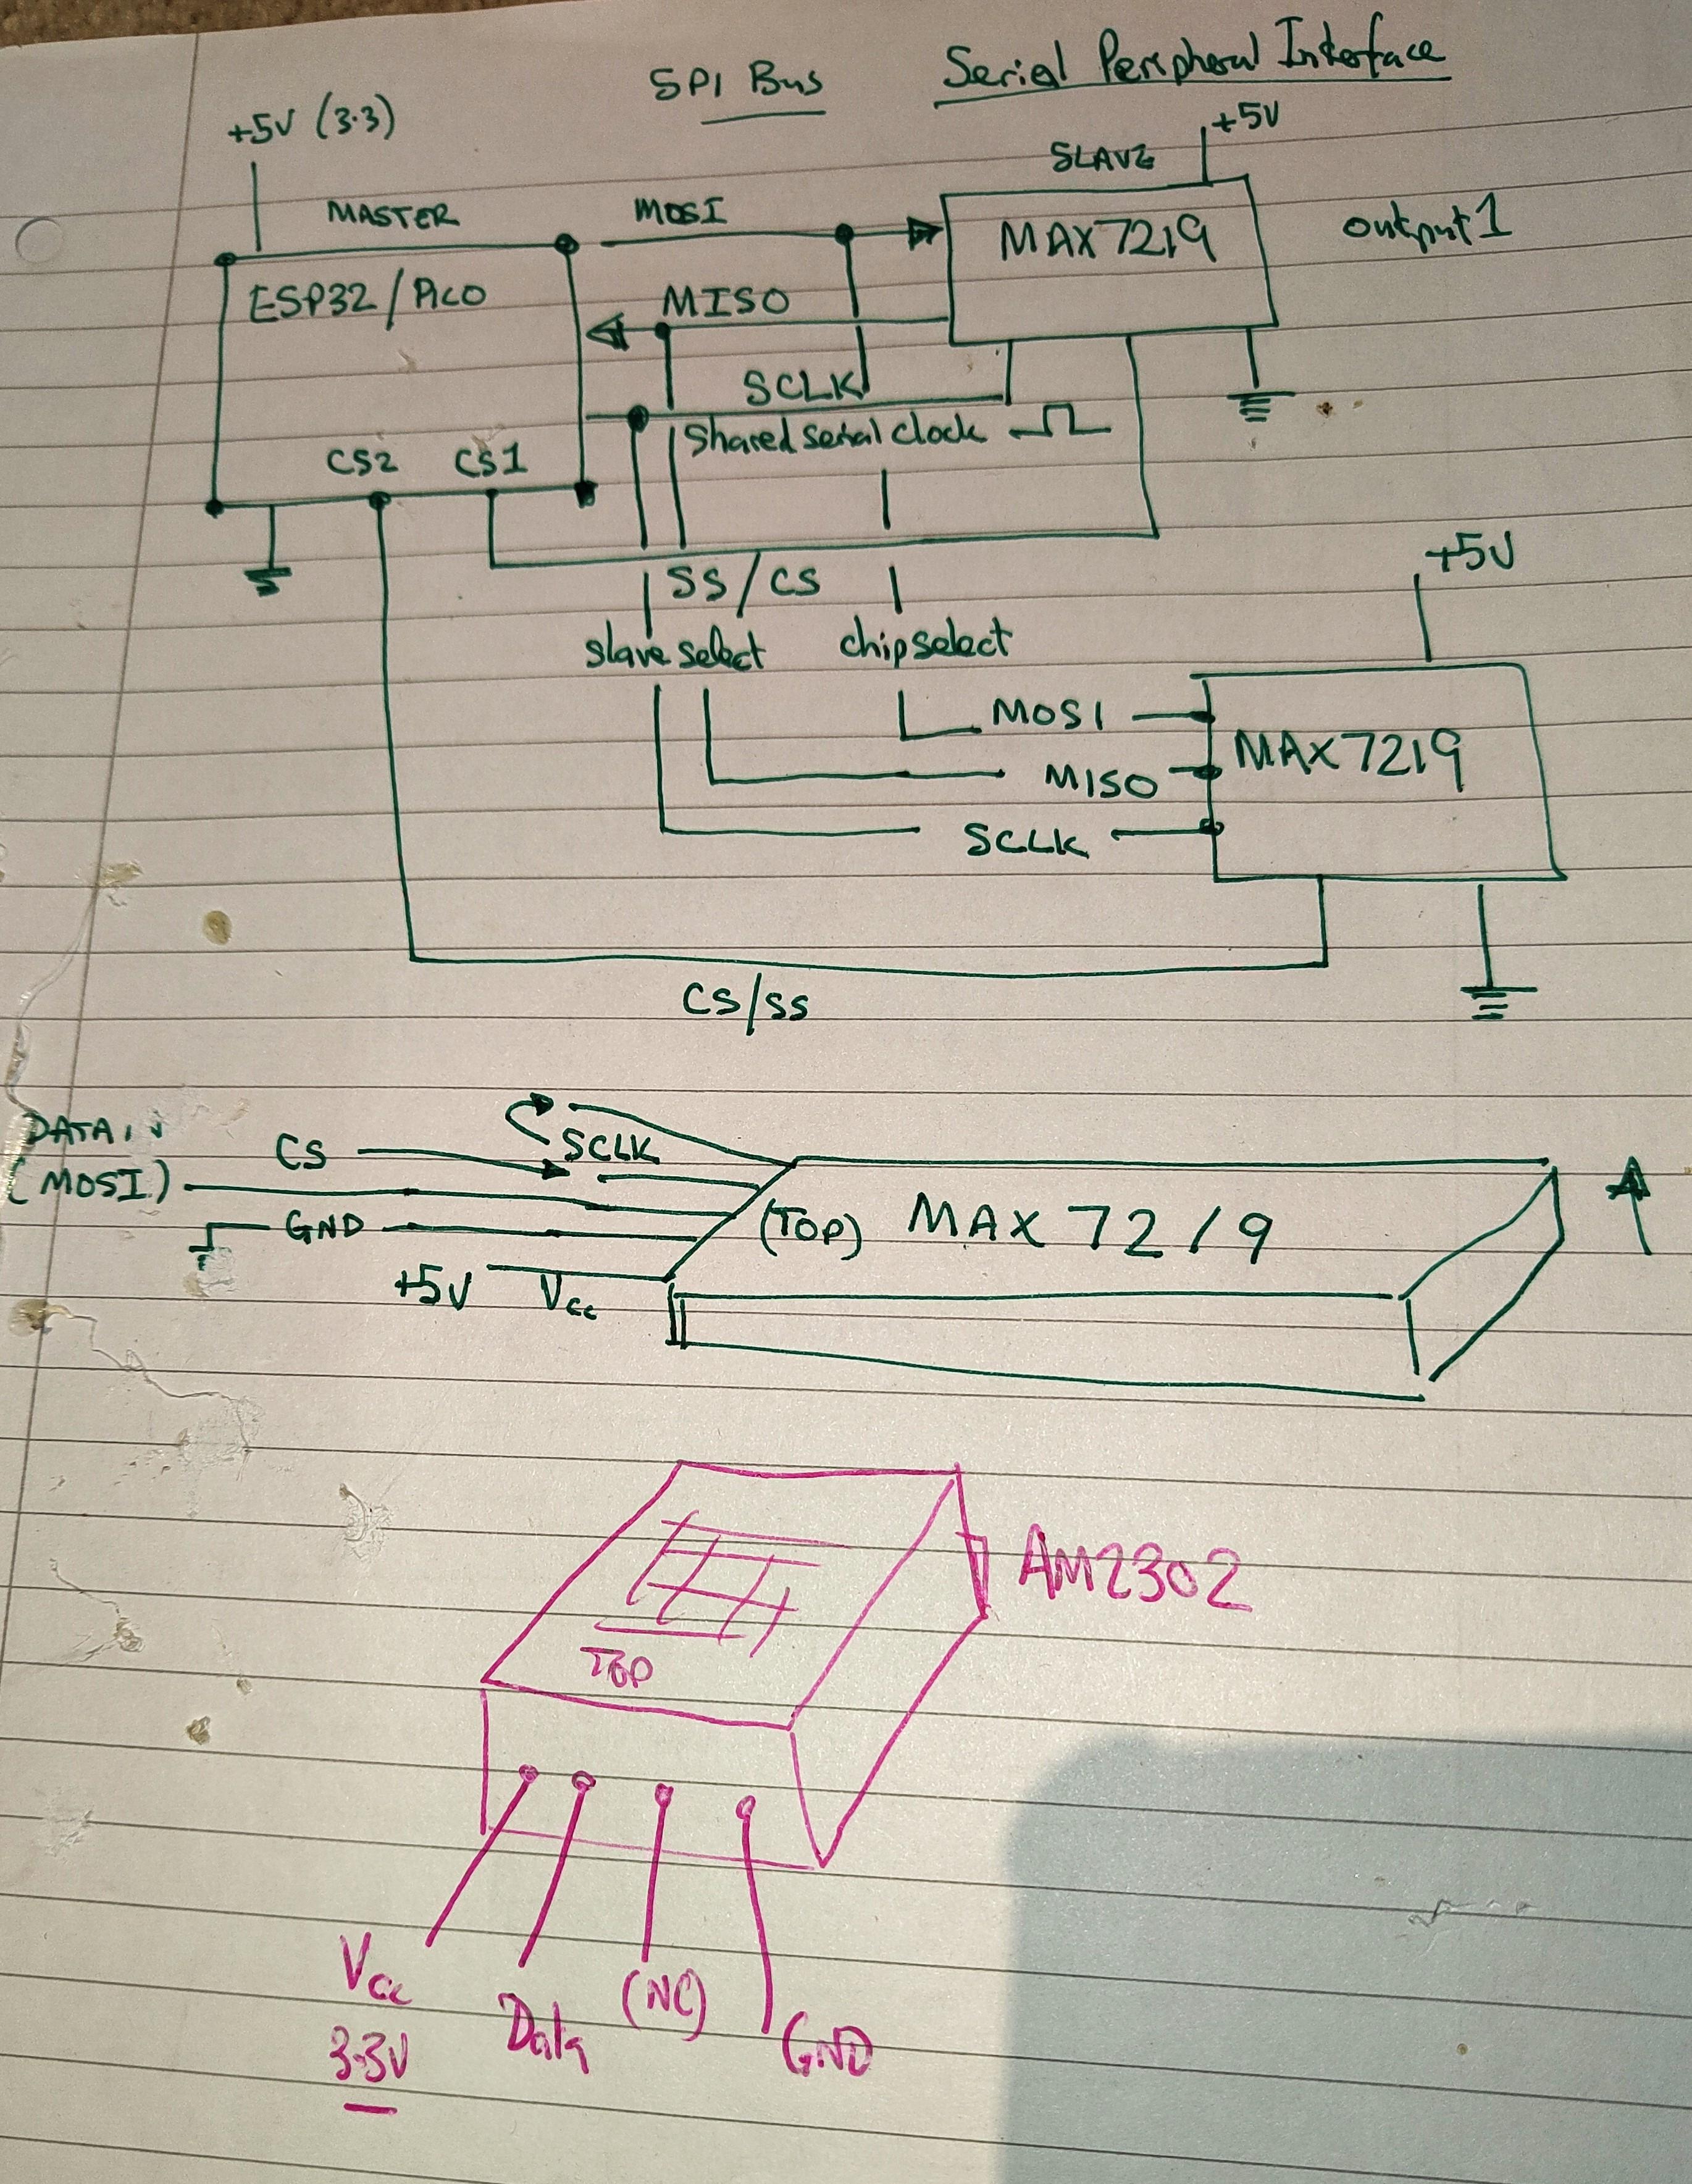 SPI Bus Serial Peripheral Interface
+5V (3.3)
+5V
SLAVE
MASTER
MOSI
MAX7219
output1
ESP32/PICO
MISO
SCLK
Shared serial clock
CS2 CS1
SS/CS
slave select
chip select
+5V
MOSI
MAX7219
MISO
SCLK
CS/SS
DATA IN
(MOSI)
CS
SCLK
(TOP) MAX 7219
GND
+5V Vcc
AM2302
TOP
Vcc
3.3V
Data
(NC)
GND